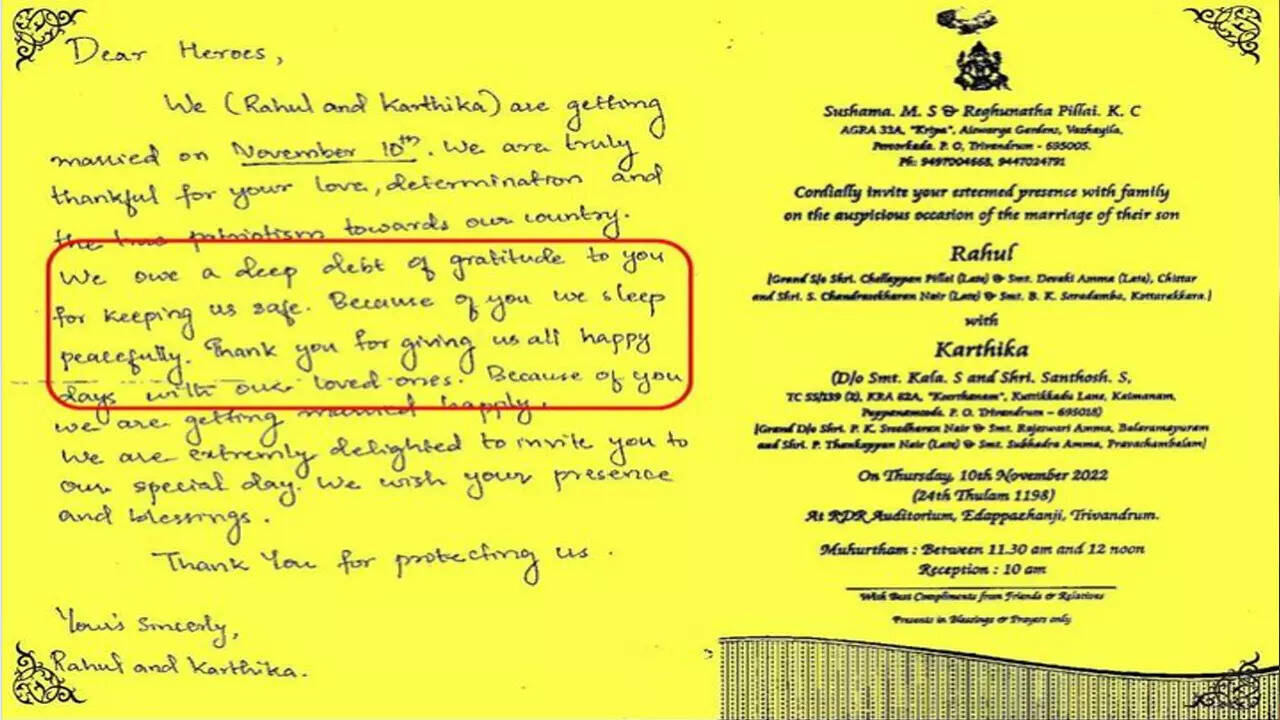 Dear Heroes,
We (Rahul and Karthika) are getting
married on November 10th. We are truly
thankful for your love, determination and
the true patriotism towards our country.
We owe a deep debt of gratitude to you
for keeping us safe. Because of you we sleep
peacefully. Thank you for giving us all happy
days with our loved ones. Because of you
we are getting married happly.
We are extremly delighted to invite you to
our special day. We wish your presence
and blessings.
Thank You for protecting us.
Your's Sincerly,
Rahul and Karthika.
Sushama. M. S & Reghunatha Pillai. K. C
AGRA 32A, "Kripa", Aiswarya Gardens, Vazhayila,
Peroorkada. P. O, Trivandrum - 695005.
Ph: 9497004668, 9447024791
Cordially invite your esteemed presence with family
on the auspicious occasion of the marriage of their son
Rahul
[Grand S/o Shri. Chellappan Pillai (Late) & Smt. Devaki Amma (Late), Chittar
and Shri. S. Chandrasekharan Nair (Late) & Smt. B. K. Saradamba, Kottarakkara.]
with
Karthika
(D/o Smt. Kala. S and Shri. Santhosh. S,
TC 55/139 (2), KRA 62A, "Keerthanam", Kuttikkadu Lane, Kaimanam,
Pappanamcode. P. O. Trivandrum – 695018)
[Grand D/o Shri. P. K. Sreedharan Nair & Smt. Rajeswari Amma, Balaramapuram
and Shri. P. Thankappan Nair (Late) & Smt. Subhadra Amma, Pravachambalam]
On Thursday, 10th November 2022
(24th Thulam 1198)
At RDR Auditorium, Edappazhanji, Trivandrum.
Muhurtham : Between 11.30 am and 12 noon
Reception : 10 am
With Best Compliments from Friends & Relatives
Presents in Blessings & Prayers only